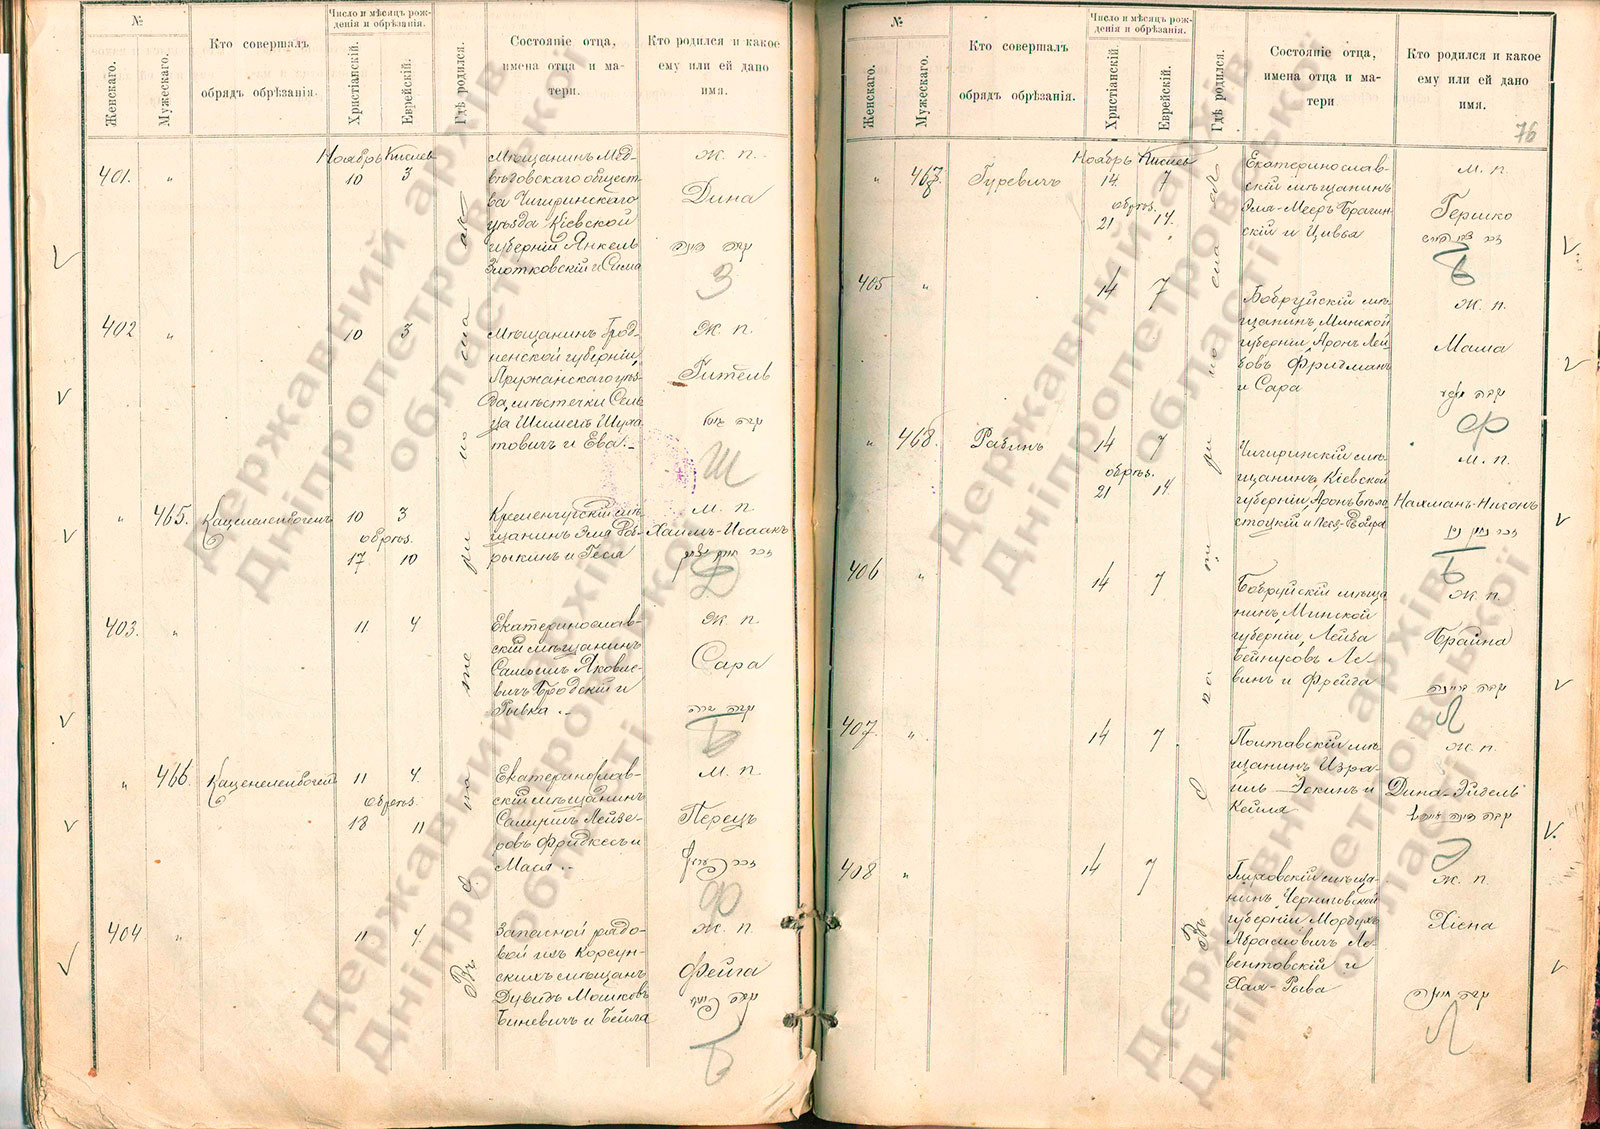 №
Женскаго.
Мужескаго.
Кто совершалъ
обрядъ обрѣзанія.
Число и мѣсяцъ рож-
денія и обрѣзанія.
Христіанскій.
Еврейскій.
Гдѣ родился.
Состояніе отца,
имена отца и ма-
тери.
Кто родился и какое
ему или ей дано
имя.
Ноябрь Кислев
401. " 10 3
Мѣщанинъ Мед-
вѣдовскаго общест-
ва Чигиринскаго
уѣзда Кіевской
губерніи Янкель
Злотковскій и Сима
Ж. п.
Дина
נקבה דינה
З
402 " 10 3
Мѣщанинъ Грод-
ненской губерніи,
Пружанскаго уѣз-
да, мѣстечки Сель
ца Шимень
товичъ и Ева.-
Ж. п.
Гитель
נקבה גיטל
Ш
" 465. Каценеленбогенъ 10 3
обрѣз.
17 10
Кременчугскій мѣ-
щанинъ Эля
рыкинъ и Геся
М. п.
Хаимъ-Исаакъ
זכר חיים יצחק
403. " 11 4
Екатеринослав-
скій мѣщанинъ
Самуилъ Яковле-
вичъ Бродскій и
Рывка
Ж. п.
Сара
נקבה שרה
Б
" 466. Каценеленбогенъ 11 4.
обрѣз.
18 11
Екатеринослав-
скій мѣщанинъ
Лейзе-
ровъ Фридкесъ и
Мася
М. п.
Перецъ
זכר פרץ
Ф
404 " 11 4.
Запасной рядо-
вой изъ Корсун-
скихъ мѣщанъ
Дувидъ Мошковъ
Биневичъ и Бейла
Ж. п.
Фейга
נקבה פייגא
Б
Въ г. Па
№
Женскаго.
Мужескаго.
Кто совершалъ
обрядъ обрѣзанія.
Число и мѣсяцъ рож-
денія и обрѣзанія.
Христіанскій.
Еврейскій.
Гдѣ родился.
Состояніе отца,
имена отца и ма-
тери
Кто родился и какое
ему или ей дано
имя.
76
Ноябрь Кислев
" 467. Гуревичъ 14. 7
обрѣз.
21 14.
Екатеринослав-
скій мѣщанинъ
Эля-Мееръ Брагин-
скій и Цивья
М. п.
Гершко
זכר צבי הירש
Б
405 " 14 7
Бобруйскій мѣ-
щанинъ, Минской
губерніи, Аронъ Лей-
бовъ Фридманъ
и Сара
Ж. п.
Маша
נקבה מאשע
Ф
" 468. Рабинъ 14 7
обрѣз.
21 14.
Чигиринскій мѣ-
щанинъ, Кіевской
губерніи, Аронъ Бѣло-
стоцкій и Песя-Двойра
М. п.
Нахманъ-Нисонъ
זכר נחמן ניסן
Б
406 " 14 7
Бобруйскій мѣща
нинъ, Минской
губерніи, Лейба
Бейнусовъ Ле-
винъ и Фрейда
Ж. п.
Брайна
נקבה בריינה
Л
407 " 14 7
Полтавскій мѣ-
щанинъ Изра-
иль Эскинъ и
Кейля
Ж. п.
Дина-Эйдель
נקבה דינה איידל
408 " 14 7
Глуховскій мѣща-
нинъ, Черниговской
губерніи, Мордухъ
Абрамовичъ Ле-
вентовскій и
Хая-Рыва
Ж. п.
Хіена
נקבה חיענה
Л
Державний архів
Дніпропетровської
області